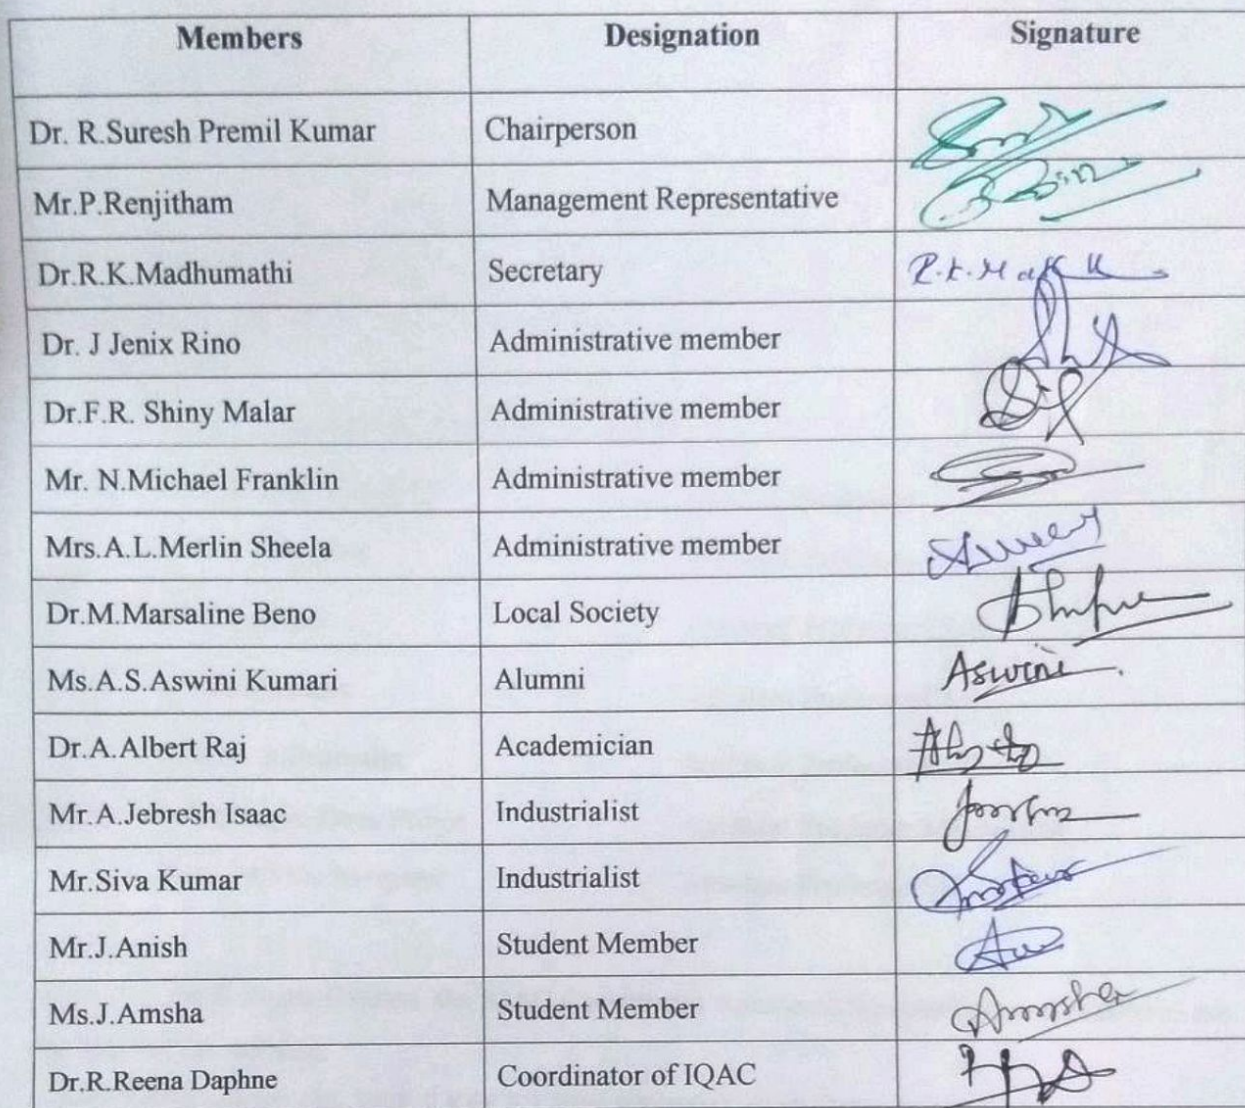 Members Designation Signature
Dr. R.Suresh Premil Kumar Chairperson
Mr.P.Renjitham Management Representative
Dr.R.K.Madhumathi Secretary
Dr. J Jenix Rino Administrative member
Dr.F.R. Shiny Malar Administrative member
Mr. N.Michael Franklin Administrative member
Mrs.A.L.Merlin Sheela Administrative member
Dr.M.Marsaline Beno Local Society
Ms.A.S.Aswini Kumari Alumni Aswini
Dr.A.Albert Raj Academician
Mr.A.Jebresh Isaac Industrialist
Mr.Siva Kumar Industrialist
Mr.J.Anish Student Member
Ms.J.Amsha Student Member Amsha
Dr.R.Reena Daphne Coordinator of IQAC